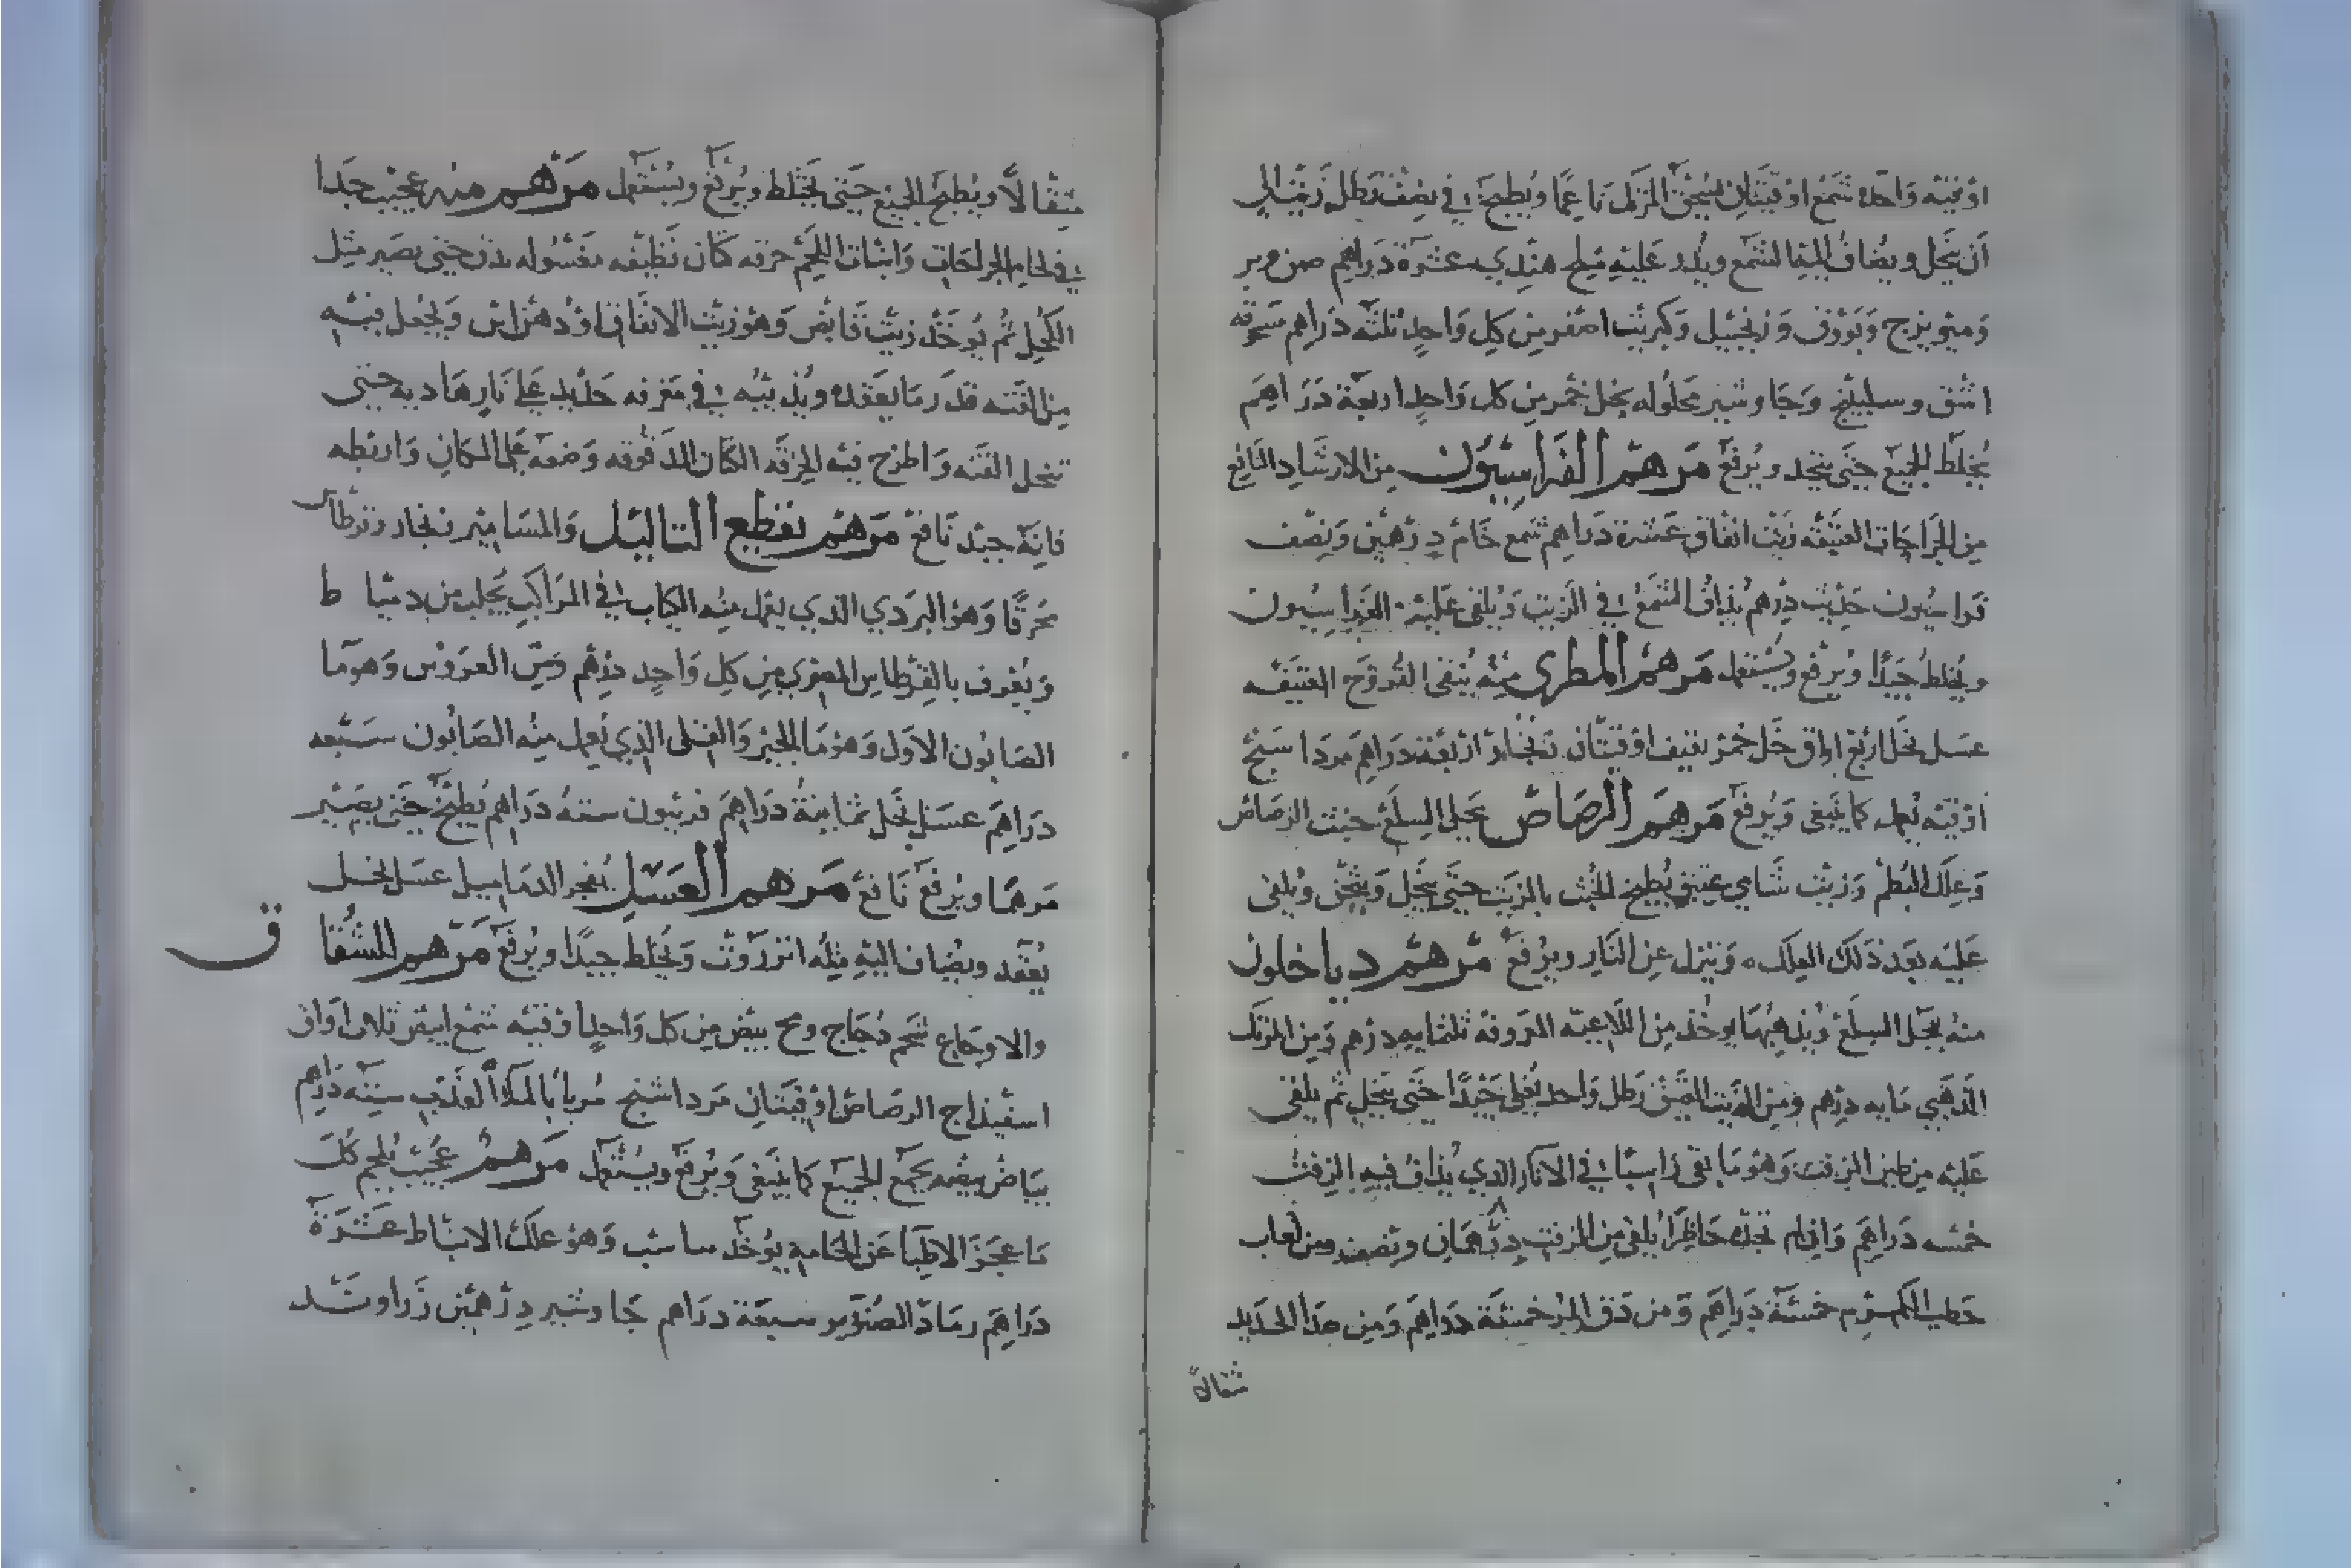 اوقيه واحده شمع اوقيتان يسحق المرتك ناعمًا ويطبخ في نصف رطل زيت الي
ان ينحل ويضاف اليه الشمع ويذر عليه ملح هندي عشرة دراهم صبر
وميويزج وبورق وزنجبيل وكبريت اصفر من كل واحد ثلثه دراهم
اشق وسكبينج وجاوشير محلوله بخل خمر من كل واحد اربعة دراهم
يخلط الجميع حتى يتحد ويرفع مرهم الفراسيون من الارشاد النافع
من الجراحات العتيقه زيت انفاق عشرة دراهم شمع خام درهمين ونصف
فراسيون حديث درهم يذاف الشمع في الزيت ويلقى عليه الفراسيون
ويخلط جيدًا ويرفع ويستعمل مرهم المطرى منه ينقى القروح العتيقه
عسل نحل اربع اواق خل خمر ثقيف اوقيتان زنجار اربعة دراهم مرداسنج
اوقيه يعمل كما ينبغى ويرفع مرهم الرصاص يحلل السلع خبث الرصاص
وعلك البطم وزيت شامي عتيق يطبخ الخبث بالزيت حتى ينحل ويسحق ويلقى
عليه بعد ذلك العلك وينزل عن النار ويرفع مرهم دياخلون
منه يحلل السلع ويذهبها يوخذ من اللاعيه المعروفة ثلثمايه درهم ومن المرتك
الذهبي مايه درهم ومن الزيت العتيق رطل واحد يغلى جيدًا حتى ينحل ثم يلقى
عليه من طين الزفت وهو ما بقى راسبًا في الاناء الذي يذاف فيه الزفت
خمسه دراهم وان لم تجده حاظرًا يلقى من الزفت درهمان ونصف ومن لعاب
حطب الكرم خمسة دراهم ومن دق المر خمسة دراهم ومن صدا الحديد
مثقالاً
مثقالًا ويطبخ الجميع حتى يختلط ويرفع ويستعمل مرهم منه عجيب جدا
في الحام الجراحات وانبات اللحم خرقه كتان نظيفه مغسوله تدق حتى تصير مثل
الكحل ثم يوخذ زيت قابض وهو زيت الانفاق او دهن اس ويجعل فيه
من القنه قدر ما يعقده ويذيبه في مغرفه حديد على نار هاديه حتى
تنحل القنه واطرح فيه الخرقه الكتان المدقوقه وضعه على المكان واربطه
فانه جيد نافع مرهم يقطع التاليل والمسامير زنجار وقرطاس
محرقًا وهو البردي الذي يعمل منه الكتاب في المراكب يجلب من دمياط
ويعرف بالقرطاس المصرى من كل واحد درهم العروس وهو ما
الصابون الاول وهو ما الجير والقلى الذي يعمل منه الصابون سبعه
دراهم عسل نحل ثمانية دراهم فربيون ستة دراهم يطبخ حتى يصير
مرهمًا ويرفع نافع مرهم العسل يفجر الدماميل عسل نحل
يعقد ويضاف اليه مثله انزروت ويخلط جيدًا ويرفع مرهم للشقاق
والاوجاع شحم دجاج ومح بيض من كل واحد اوقيه شمع ابيض ثلاث اواق
اسفيذاج الرصاص اوقيتان مرداسنج مربا بالماء العذب سته دراهم
بياض بيضه يجمع الجميع كما ينبغى ويرفع ويستعمل مرهم عجيب يلحم كل
ما عجز الاطبا عن الحامه يوخذ وهو علك الانباط عشرة
دراهم رماد الصنوبر سبعة دراهم جاوشير درهمين زراوند